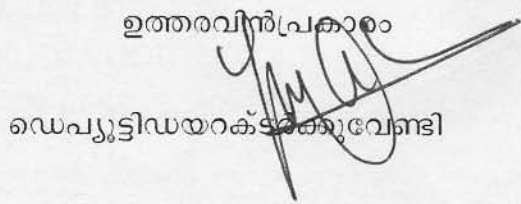 ഉത്തരവിൻപ്രകാരം
ഡെപ്യൂട്ടിഡയറക്ടർക്കുവേണ്ടി